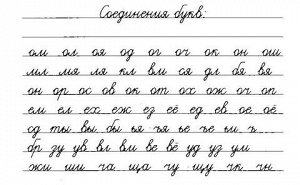 Соединения букв:
ом ол оя од ог оч ок он ош
мл мя ля кл вм ся дл бя вя
он ор ос ов ок от ох ож оч оп
ем ел ех еж ез её ед ев ое оё
од ты вы бы ья ъя ье ъе ьи ъ
бр зу ув вл вм ве вё уд уз ум
жи ши ча ща чу щу чк чн